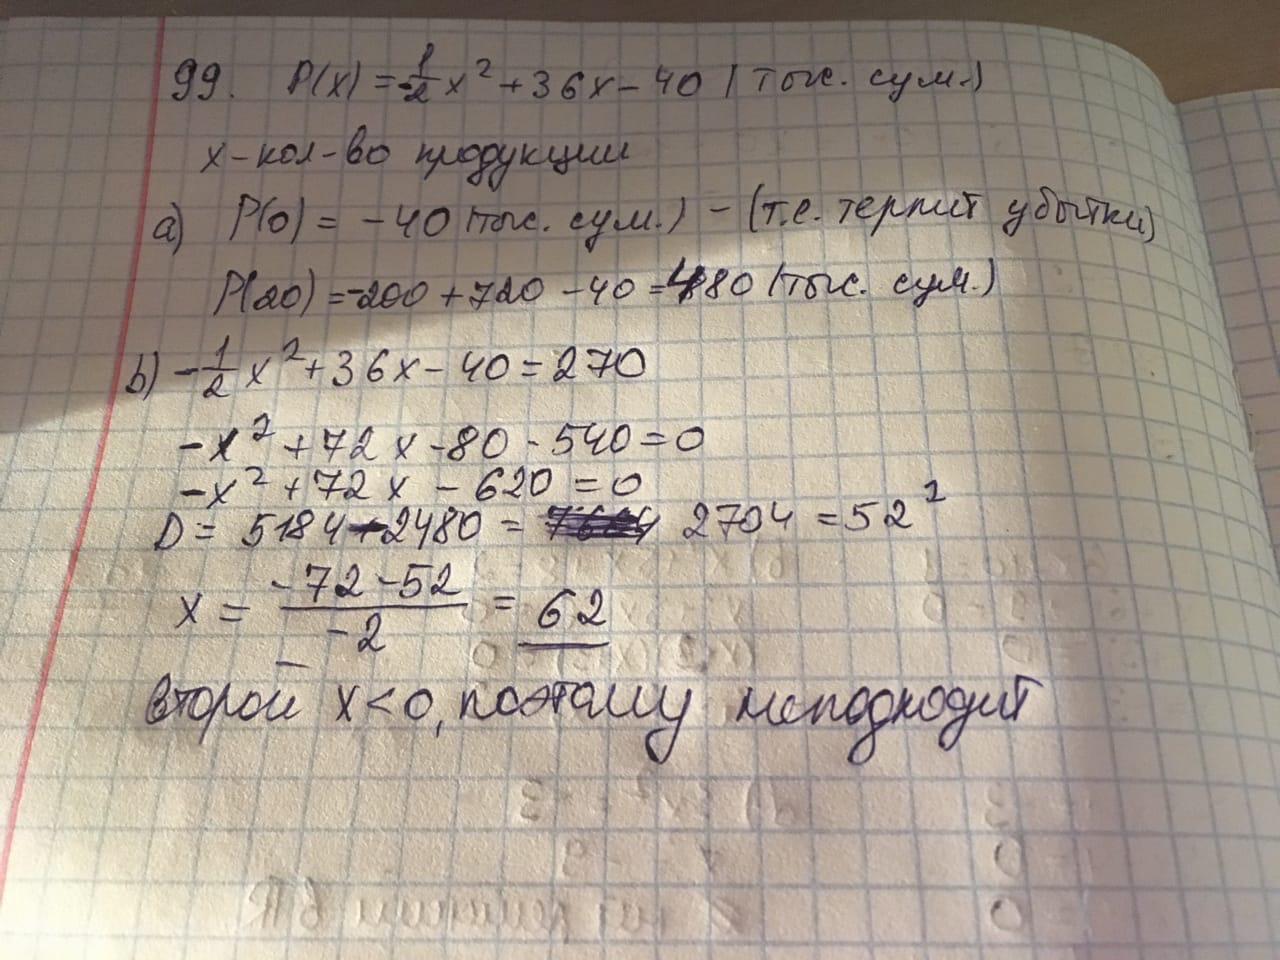 99. P(x) = -1/2 x² + 36x - 40 (тыс. сум.)
x - кол-во продукции
a) P(0) = -40 (тыс. сум.) - (т.е. терпит убытки)
P(20) = -200 + 720 - 40 = 480 (тыс. сум.)
b) -1/2 x² + 36x - 40 = 270
-x² + 72x - 80 - 540 = 0
-x² + 72x - 620 = 0
D = 5184 - 2480 = 2704 = 52²
x = (-72 - 52)/-2 = 62
второй x < 0, поэтому неподходит